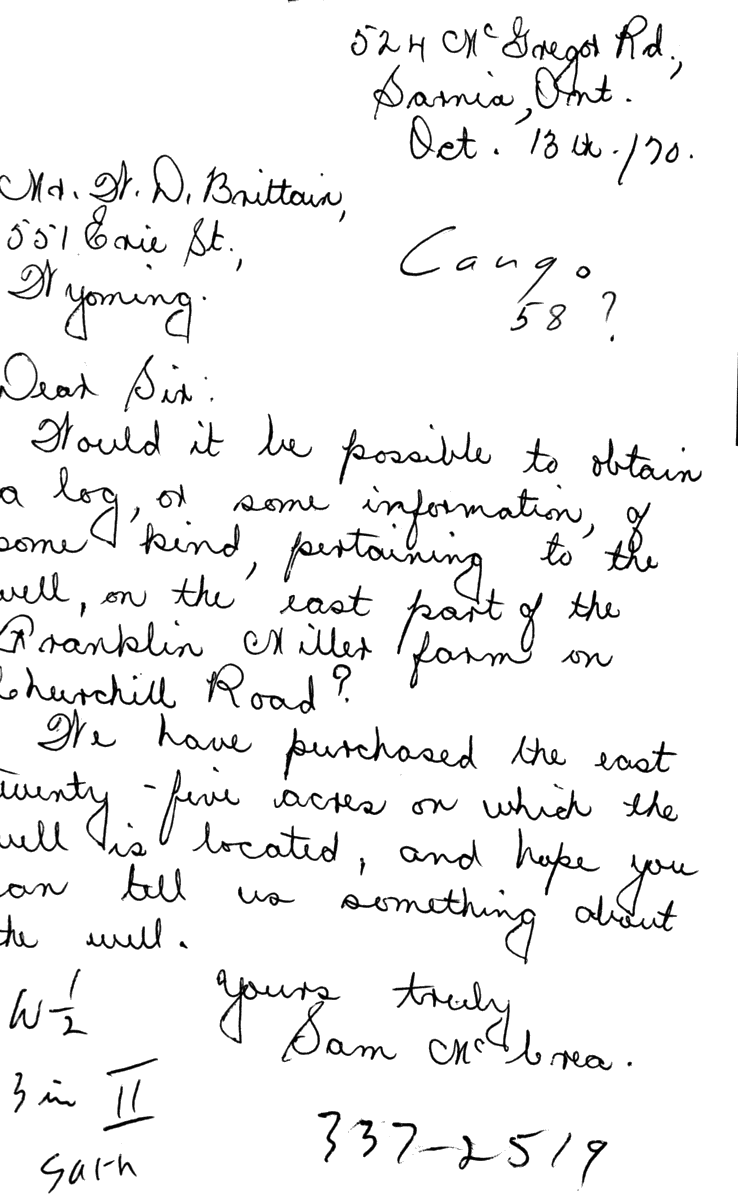 524 McGregor Rd.,
Sarnia, Ont.
Oct. 13th./70.
Mr. W. D. Brittain,
551 Erie St.,
Wyoming.
Cango
58?
Dear Sir:
Would it be possible to obtain
a log, or some information, of
some kind, pertaining to the
well, on the east part of the
Franklin Miller farm on
Churchill Road?
We have purchased the east
twenty-five acres on which the
well is located, and hope you
can tell us something about
the well.
Yours truly
Sam McCrea.
W 1/2
3 in II
Sarn
337-2519